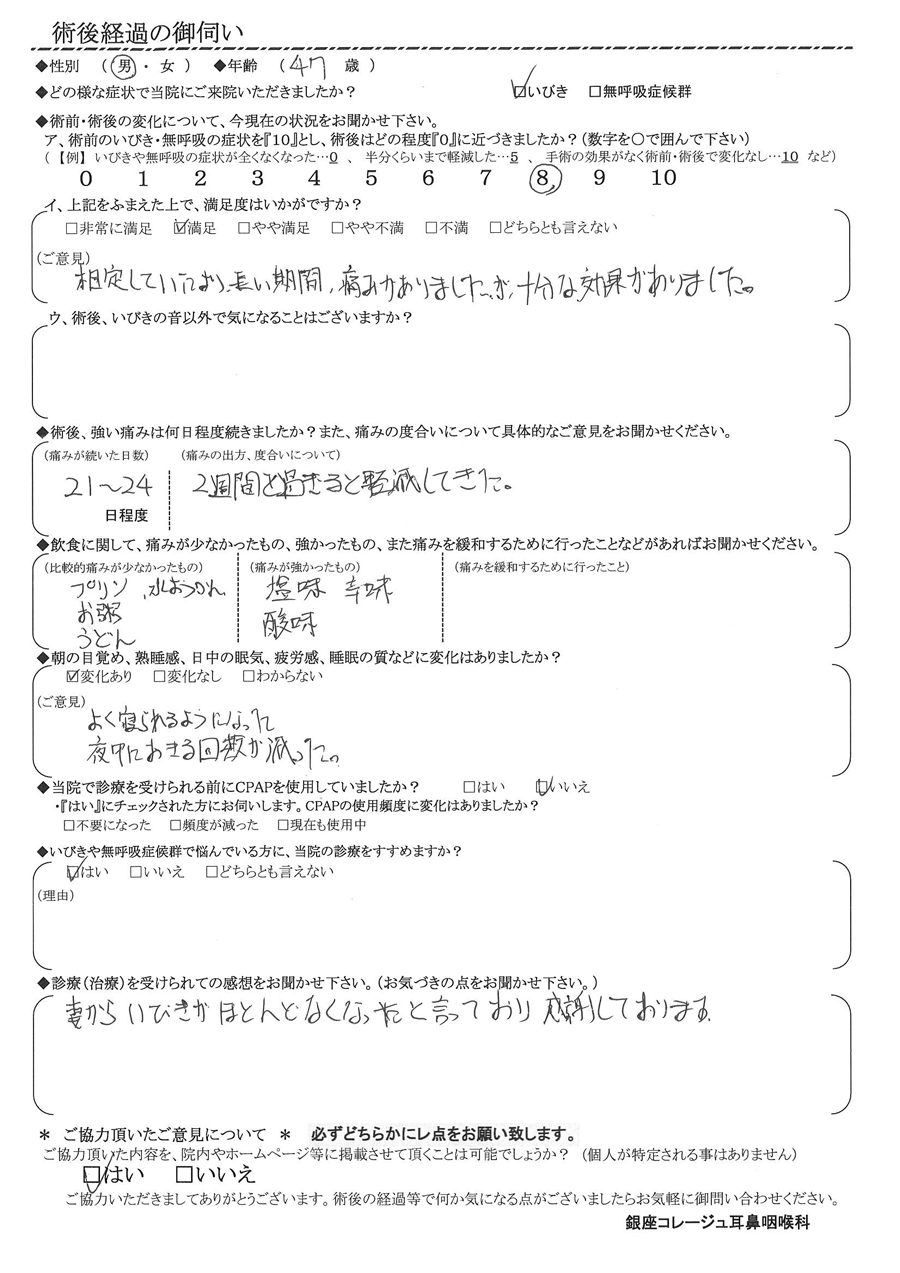 術後経過の御伺い
◆性別 (男・女) ◆年齢 (47歳)
◆どの様な症状で当院にご来院いただきましたか? ☑いびき □無呼吸症候群
◆術前・術後の変化について、今現在の状況をお聞かせ下さい。
ア、術前のいびき・無呼吸の症状を『10』とし、術後はどの程度『0』に近づきましたか?(数字を○で囲んで下さい)
(【例】いびきや無呼吸の症状が全くなくなった…0 、 半分くらいまで軽減した…5 、 手術の効果がなく術前・術後で変化なし…10 など)
0 1 2 3 4 5 6 7 8 9 10
イ、上記をふまえた上で、満足度はいかがですか?
□非常に満足 ☑満足 □やや満足 □やや不満 □不満 □どちらとも言えない
(ご意見)
相定していたより、長い期間、痛みがありましたが、十分な効果がありました。
ウ、術後、いびきの音以外で気になることはございますか?
◆術後、強い痛みは何日程度続きましたか?また、痛みの度合いについて具体的なご意見をお聞かせください。
(痛みが続いた日数) (痛みの出方、度合いについて)
21〜24 2週間を過ぎると軽減してきた。
日程度
◆飲食に関して、痛みが少なかったもの、強かったもの、また痛みを緩和するために行ったことなどがあればお聞かせください。
(比較的痛みが少なかったもの) (痛みが強かったもの) (痛みを緩和するために行ったこと)
プリン、水ようかん 塩味 辛味
お粥 酸味
うどん
◆朝の目覚め、熟睡感、日中の眠気、疲労感、睡眠の質などに変化はありましたか?
☑変化あり □変化なし □わからない
(ご意見)
よく寝られるようになった
夜中におきる回数が減った。
◆当院で診療を受けられる前にCPAPを使用していましたか? □はい ☑いいえ
・『はい』にチェックされた方にお伺いします。CPAPの使用頻度に変化はありましたか?
□不要になった □頻度が減った □現在も使用中
◆いびきや無呼吸症候群で悩んでいる方に、当院の診療をすすめますか?
☑はい □いいえ □どちらとも言えない
(理由)
◆診療(治療)を受けられての感想をお聞かせ下さい。(お気づきの点をお聞かせ下さい。)
妻からいびきがほとんどなくなったと言っており 感謝しております。
＊ ご協力頂いたご意見について ＊ 必ずどちらかにレ点をお願い致します。
ご協力頂いた内容を、院内やホームページ等に掲載させて頂くことは可能でしょうか? (個人が特定される事はありません)
☑はい □いいえ
ご協力いただきましてありがとうございます。術後の経過等で何か気になる点がございましたらお気軽に御問い合わせください。
銀座コレージュ耳鼻咽喉科